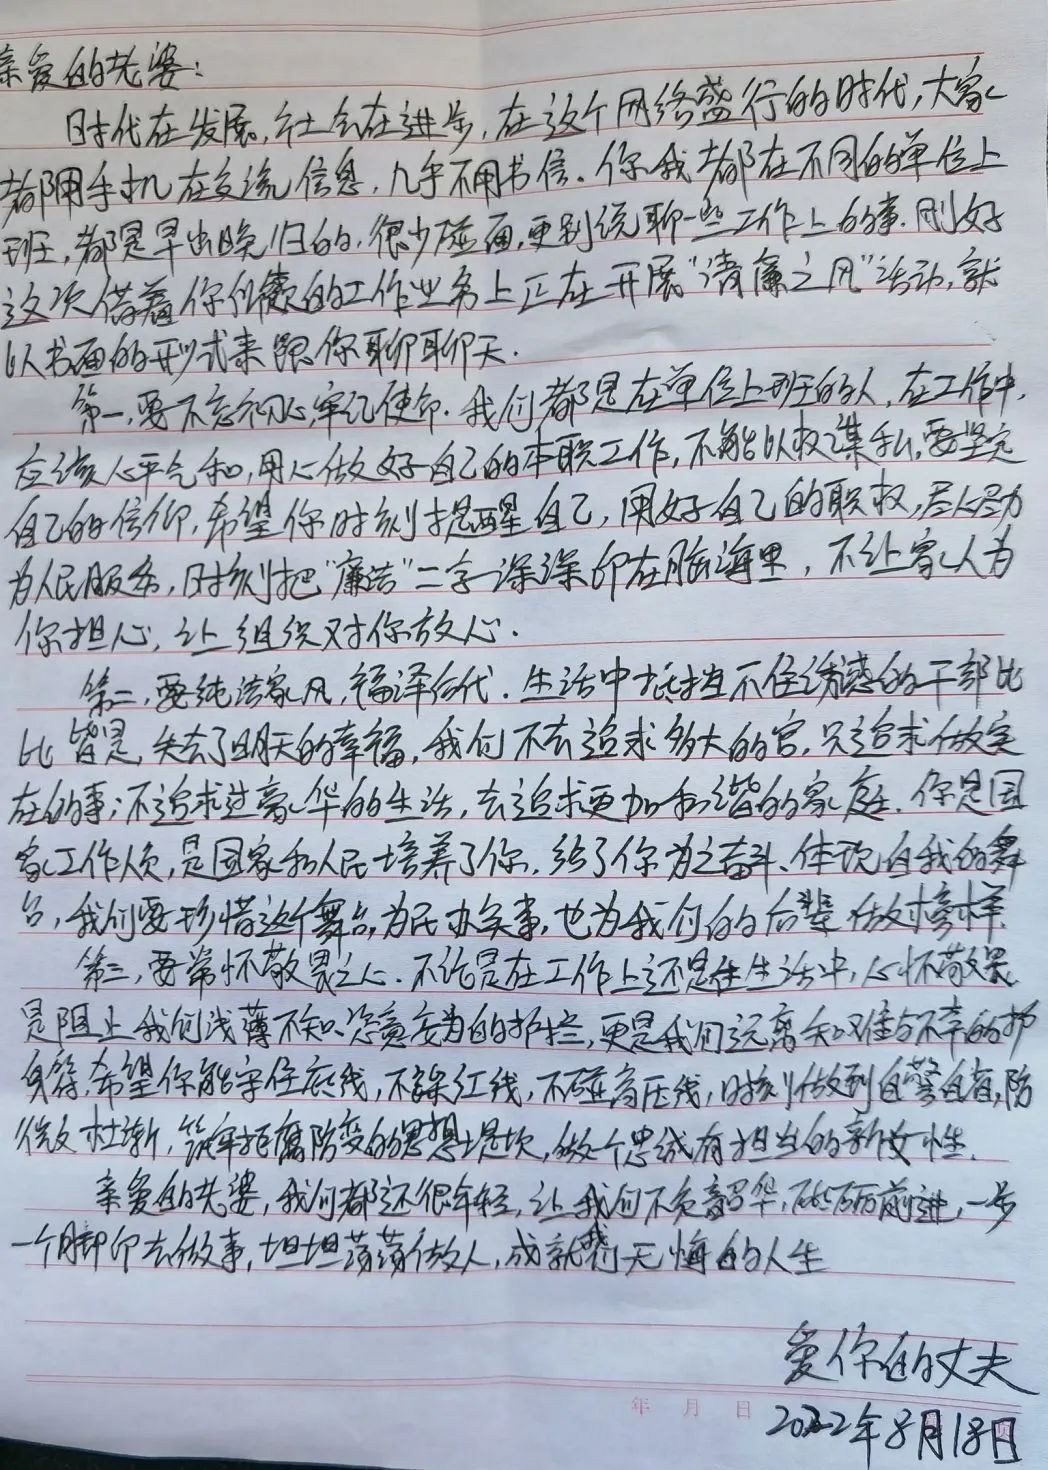 亲爱的老婆：
时代在发展，社会在进步，在这个网络盛行的时代，大家
都用手机在交流信息，几乎不用书信。你我都在不同的单位上
班，都是早出晚归的，很少碰面，更别说聊一些工作上的事．刚好
这次借着你们的工作业务上正在开展“清廉之风”活动，就
以书面的形式来跟你聊聊天．
第一，要不忘初心，牢记使命．我们都是在单位上班的人，在工作中，
应该心平气和，用心做好自己的本职工作，不能以权谋私，要坚定
自己的信仰，希望你时刻提醒自己，用好自己的职权，尽心尽力
为人民服务，时刻把“廉洁”二字深深印在脑海里，不让家人为
你担心，让组织对你放心．
第二，要纯洁家风，福泽后代．生活中抵挡不住诱惑的干部比
比皆是，失去了明天的幸福，我们不去追求多大的官，只追求做实
在的事；不追求过豪华的生活，去追求更加和谐的家庭．你是国
家工作人员，是国家和人民培养了你，给了你为之奋斗、体现自我的舞
台，我们要珍惜这个舞台，为民办实事，也为我们的后辈做榜样．
第三，要常怀敬畏之心．不论是在工作上还是在生活中，心怀敬畏
是阻止我们浅薄不知、恣意妄为的护栏，更是我们远离与不幸的护
身符，希望你能守住底线，不踩红线，不碰高压线，时刻做到自警自省，防
微杜渐，筑牢拒腐防变的思想堤坝，做个忠诚有担当的新女性．
亲爱的老婆，我们都还很年轻，让我们不负韶华，砥砺前进，一步
一个脚印去做事，坦坦荡荡做人，成就我们无悔的人生
爱你的丈夫
年 月 日
2022年8月18日